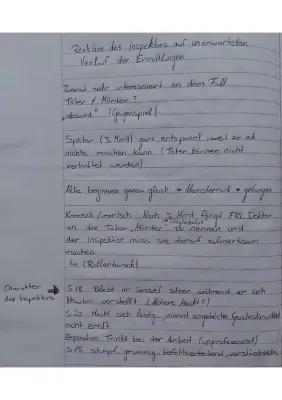 Reaktion des Inspektors auf unerwarteten
Verlauf der Ermittlungen
Zuerst sehr interessiert an dem Fall.
Täter ≠ Mörder:
"absurd" (Gegenspiel)
Später (3. Mord) ganz entspannt, weil er eh
nichts machen kann (Täter können nicht
verhaftet werden)
Akte beginnen genau gleich → Hamsterrad + gefangen
Komisch/ironisch: Nach 3. Mord fängt FRL Doktor
an die Täter "Mörder" zu nennen und
der Inspektor muss sie darauf aufmerksam
machen
↳ (Rollentausch)
Charakter
des Inspektors
S.18 Bleibt im Sessel sitzen während er sich
Newton vorstellt (höhere Macht?)
S.20 Macht sich lustig, nimmt angebliche Geisteskrankheit
nicht ernst
Exposition: Trinkt bei der Arbeit (unprofessionell)
S.15 stumpf, grummig, befehlserteilend,